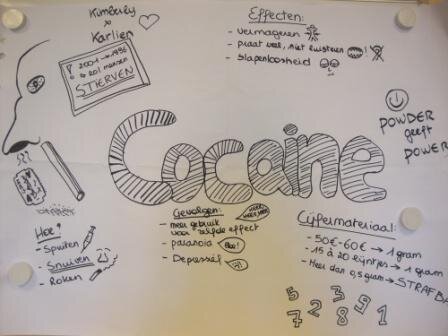 Kimberly
&
Karlien
! 2001 → 1996
201 mensen
STIERVEN
Effecten:
- vermageren
- praat veel, niet luisteren
- slapenloosheid
POWDER
geeft
POWER
Cocaine
Hoe?
- Spuiten
- Snuiven
- Roken
Gevolgen:
- meer gebruik
voor zelfde effect
- paranoia
- Depressief
Cijfermateriaal:
- 50€-60€ → 1 gram
- 15 à 20 lijntjes → 1 gram
- Meer dan 0,5 gram → STRAFBA
5 3 9
7 2 8 1